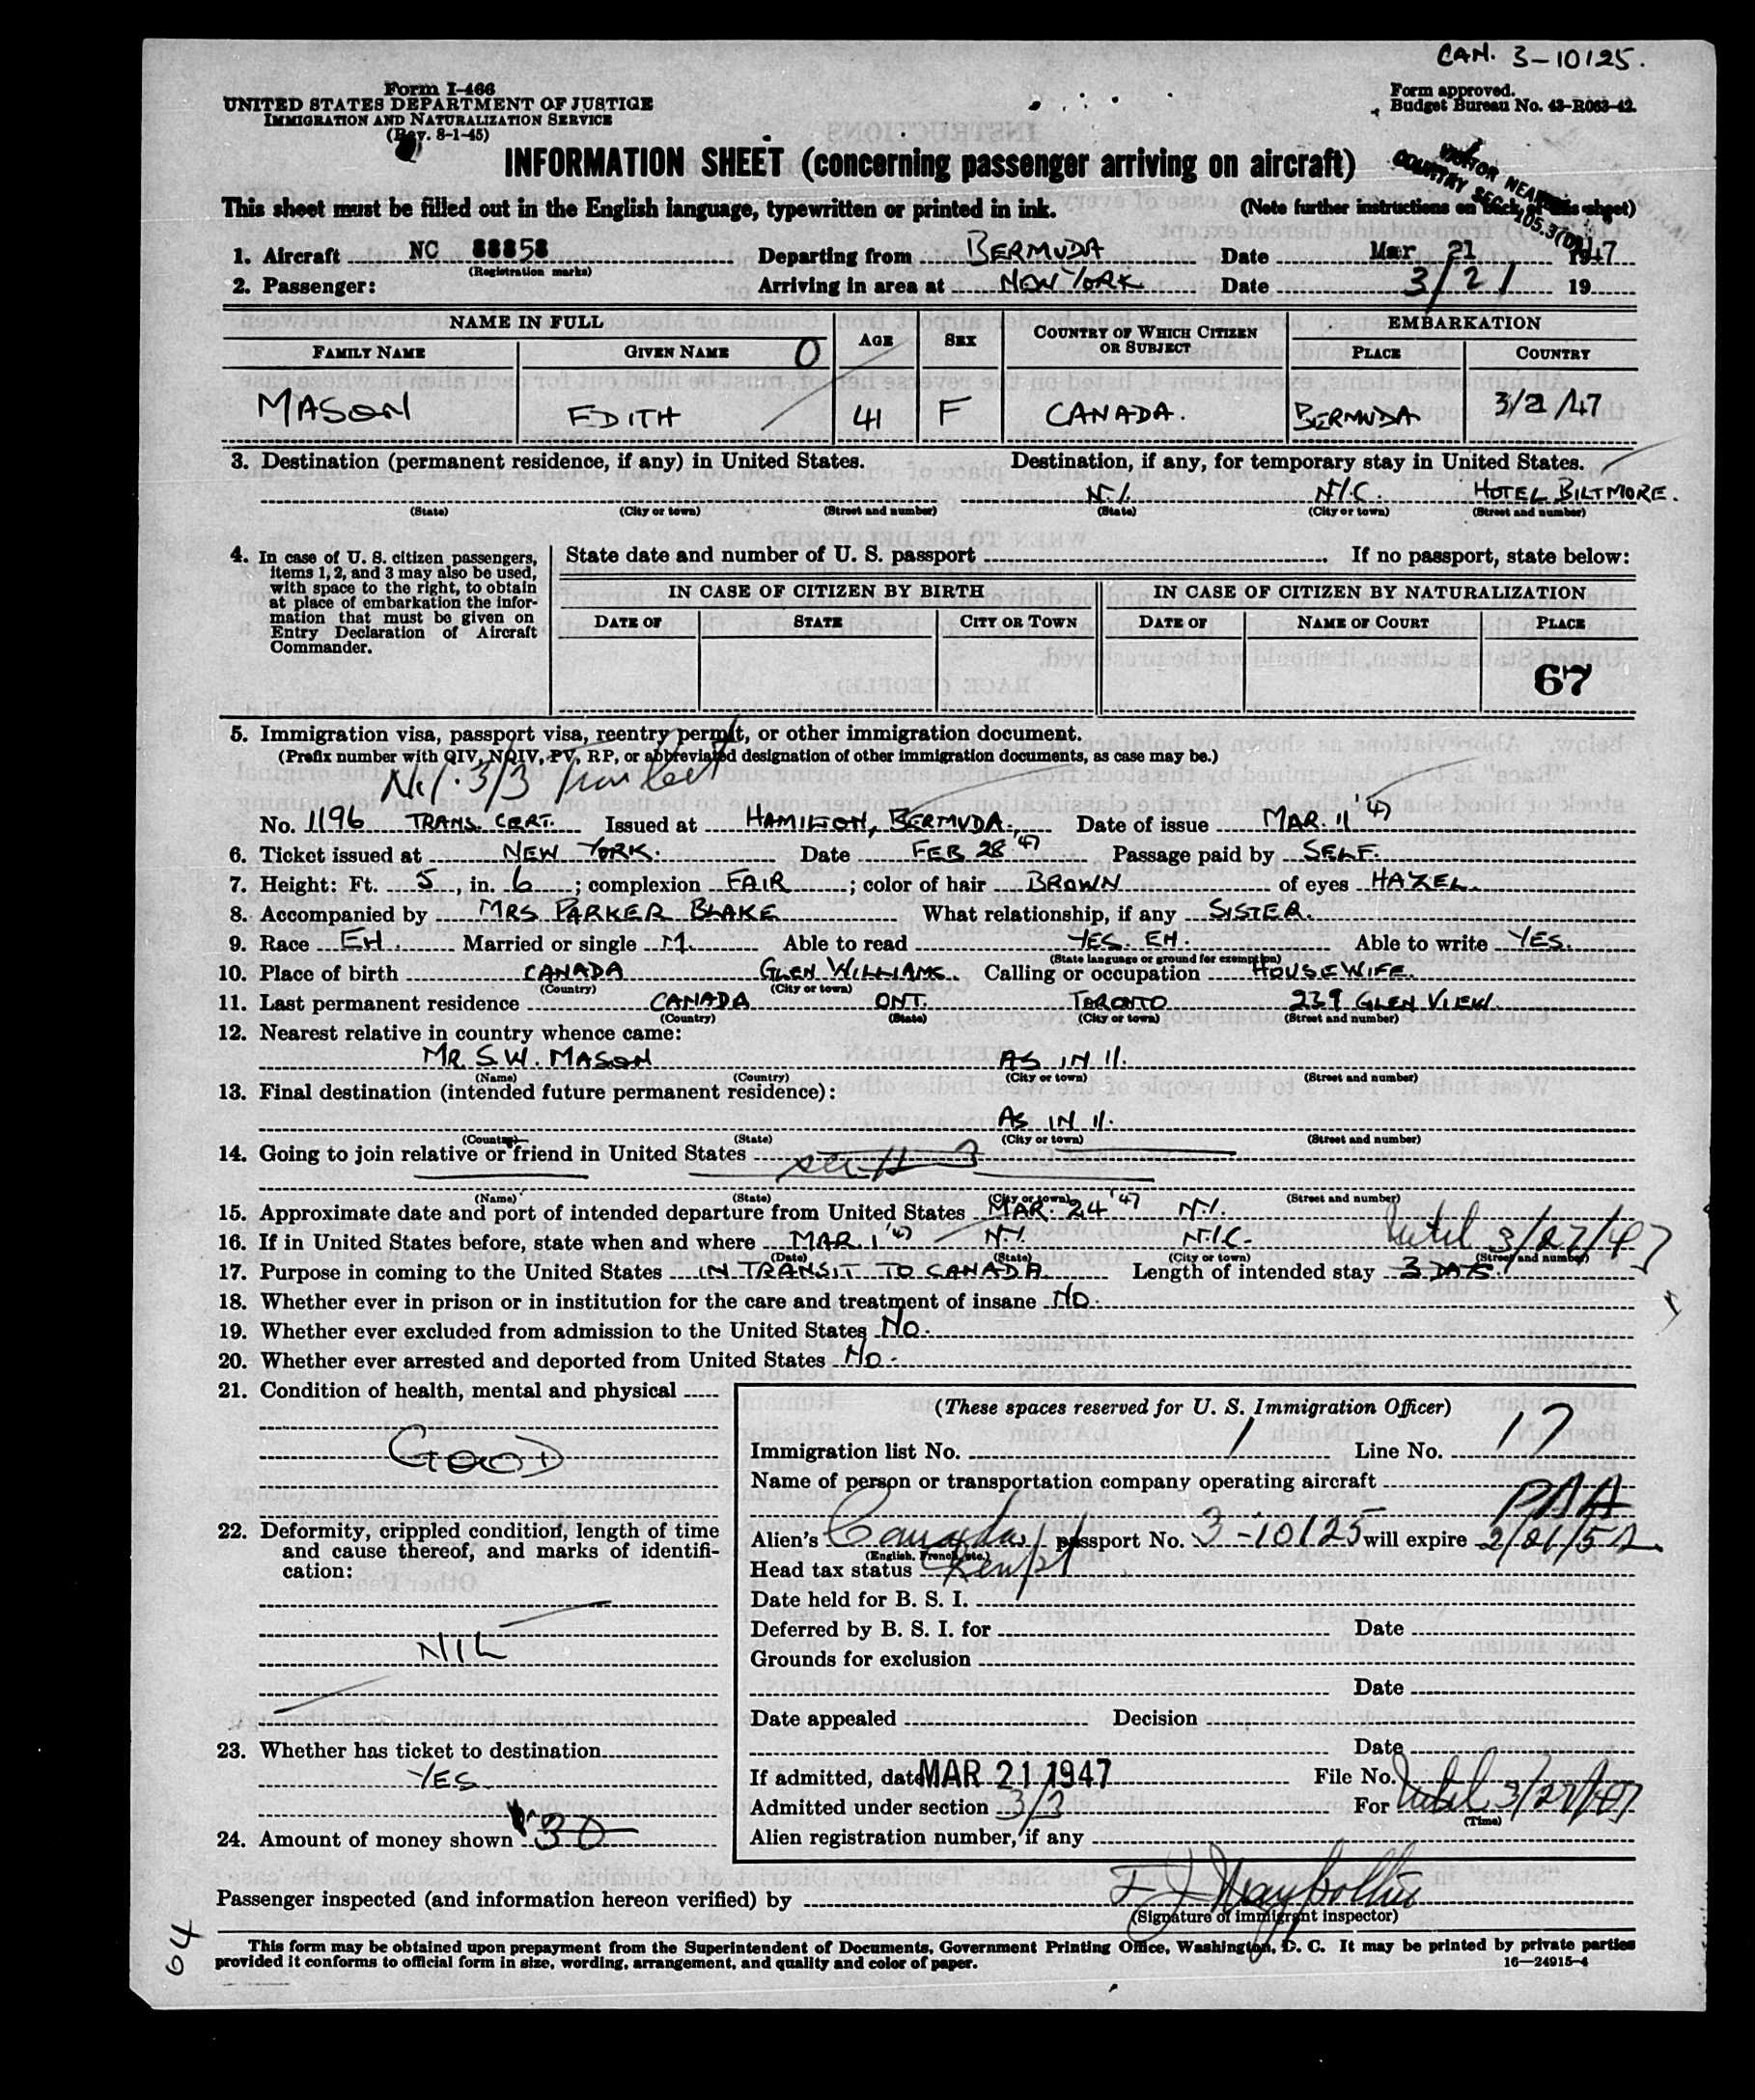 CAN. 3-10125.
Form I-466
UNITED STATES DEPARTMENT OF JUSTICE
IMMIGRATION AND NATURALIZATION SERVICE
(Rev. 8-1-45)
Form approved.
Budget Bureau No. 43-R063-42.
INFORMATION SHEET (concerning passenger arriving on aircraft)
This sheet must be filled out in the English language, typewritten or printed in ink. (Note further instructions on back of this sheet)
1. Aircraft NC 88858 Departing from BERMUDA Date Mar 21 1947
(Registration marks)
2. Passenger: Arriving in area at NEW YORK Date 3/21 19
NAME IN FULL AGE SEX COUNTRY OF WHICH CITIZEN OR SUBJECT EMBARKATION
FAMILY NAME GIVEN NAME PLACE COUNTRY
MASON EDITH 41 F CANADA. BERMUDA 3/2/47
3. Destination (permanent residence, if any) in United States. Destination, if any, for temporary stay in United States.
N.Y. N.Y.C. HOTEL BILTMORE.
(State) (City or town) (Street and number) (State) (City or town) (Street and number)
4. In case of U. S. citizen passengers, items 1, 2, and 3 may also be used, with space to the right, to obtain at place of embarkation the information that must be given on Entry Declaration of Aircraft Commander.
State date and number of U. S. passport If no passport, state below:
IN CASE OF CITIZEN BY BIRTH IN CASE OF CITIZEN BY NATURALIZATION
DATE OF STATE CITY OR TOWN DATE OF NAME OF COURT PLACE
67
5. Immigration visa, passport visa, reentry permit, or other immigration document.
(Prefix number with QIV, NQIV, PV, RP, or abbreviated designation of other immigration documents, as case may be.)
No. 1196 TRANS. CERT. Issued at HAMILTON, BERMUDA. Date of issue MAR. 11 '47
6. Ticket issued at NEW YORK. Date FEB 28 '47 Passage paid by SELF.
7. Height: Ft. 5, in. 6; complexion FAIR; color of hair BROWN of eyes HAZEL.
8. Accompanied by MRS PARKER BLAKE What relationship, if any SISTER.
9. Race EH. Married or single M. Able to read YES. EH. Able to write YES.
(State language or ground for exemption)
10. Place of birth CANADA GLEN WILLIAMS. Calling or occupation HOUSEWIFE.
(Country) (City or town)
11. Last permanent residence CANADA ONT. TORONTO 239 GLEN VIEW.
(Country) (State) (City or town) (Street and number)
12. Nearest relative in country whence came:
MR. S. W. MASON AS IN 11.
(Name) (Country) (City or town) (Street and number)
13. Final destination (intended future permanent residence):
AS IN 11.
(Country) (State) (City or town) (Street and number)
14. Going to join relative or friend in United States see # 3
(Name) (State) (City or town) (Street and number)
15. Approximate date and port of intended departure from United States MAR. 24 '47 N.Y.
16. If in United States before, state when and where MAR. 1 '47 N.Y. N.Y.C. until 3/27/47
(Date) (State) (City or town) (Street and number)
17. Purpose in coming to the United States IN TRANSIT TO CANADA. Length of intended stay 3 DAYS.
18. Whether ever in prison or in institution for the care and treatment of insane NO.
19. Whether ever excluded from admission to the United States NO.
20. Whether ever arrested and deported from United States NO.
21. Condition of health, mental and physical
GOOD
22. Deformity, crippled condition, length of time and cause thereof, and marks of identification:
NIL
23. Whether has ticket to destination
YES
24. Amount of money shown 30
(These spaces reserved for U. S. Immigration Officer)
Immigration list No. 1 Line No. 17
Name of person or transportation company operating aircraft
PAA
Alien's Canadian passport No. 3-10125 will expire 2/21/52.
(English, French, etc.)
Head tax status Exempt
Date held for B. S. I.
Deferred by B. S. I. for Date
Grounds for exclusion
Date
Date appealed Decision
Date
If admitted, date MAR 21 1947 File No.
Admitted under section 3/3 For until 3/27/47
(Time)
Alien registration number, if any
Passenger inspected (and information hereon verified) by
(Signature of immigrant inspector)
64
This form may be obtained upon prepayment from the Superintendent of Documents, Government Printing Office, Washington, D. C. It may be printed by private parties
provided it conforms to official form in size, wording, arrangement, and quality and color of paper. 16—24915-4